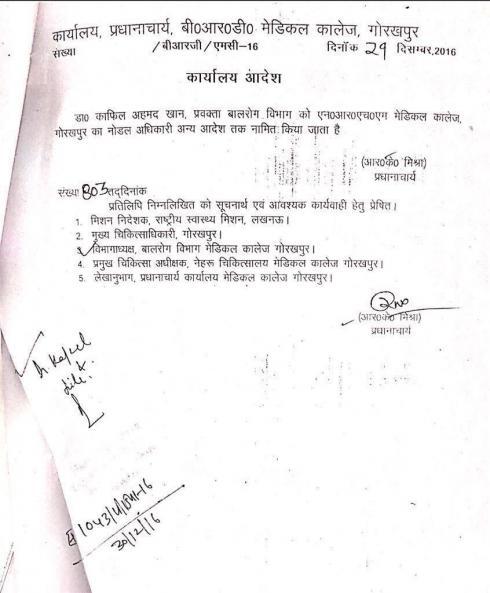 कार्यालय, प्रधानाचार्य, बी0आर0डी0 मेडिकल कालेज, गोरखपुर
संख्या /बीआरजी/एमसी-16 दिनॉक 29 दिसम्बर,2016
कार्यालय आदेश
डा0 काफिल अहमद खान, प्रवक्ता बालरोग विभाग को एन0आर0एच0एम मेडिकल कालेज,
गोरखपुर का नोडल अधिकारी अन्य आदेश तक नामित किया जाता है
(आर0के0 मिश्रा)
प्रधानाचार्य
संख्या 803 तद्दिनांक
प्रतिलिपि निम्नलिखित को सूचनार्थ एवं आवश्यक कार्यवाही हेतु प्रेषित।
1. मिशन निदेशक, राष्ट्रीय स्वास्थ्य मिशन, लखनऊ।
2. मुख्य चिकित्साधिकारी, गोरखपुर।
3. विभागाध्यक्ष, बालरोग विभाग मेडिकल कालेज गोरखपुर।
4. प्रमुख चिकित्सा अधीक्षक, नेहरू चिकित्सालय मेडिकल कालेज गोरखपुर।
5. लेखानुभाग, प्रधानाचार्य कार्यालय मेडिकल कालेज गोरखपुर।
(आर0के0 मिश्रा)
प्रधानाचार्य
Kafeel
&
file.
30/12/16